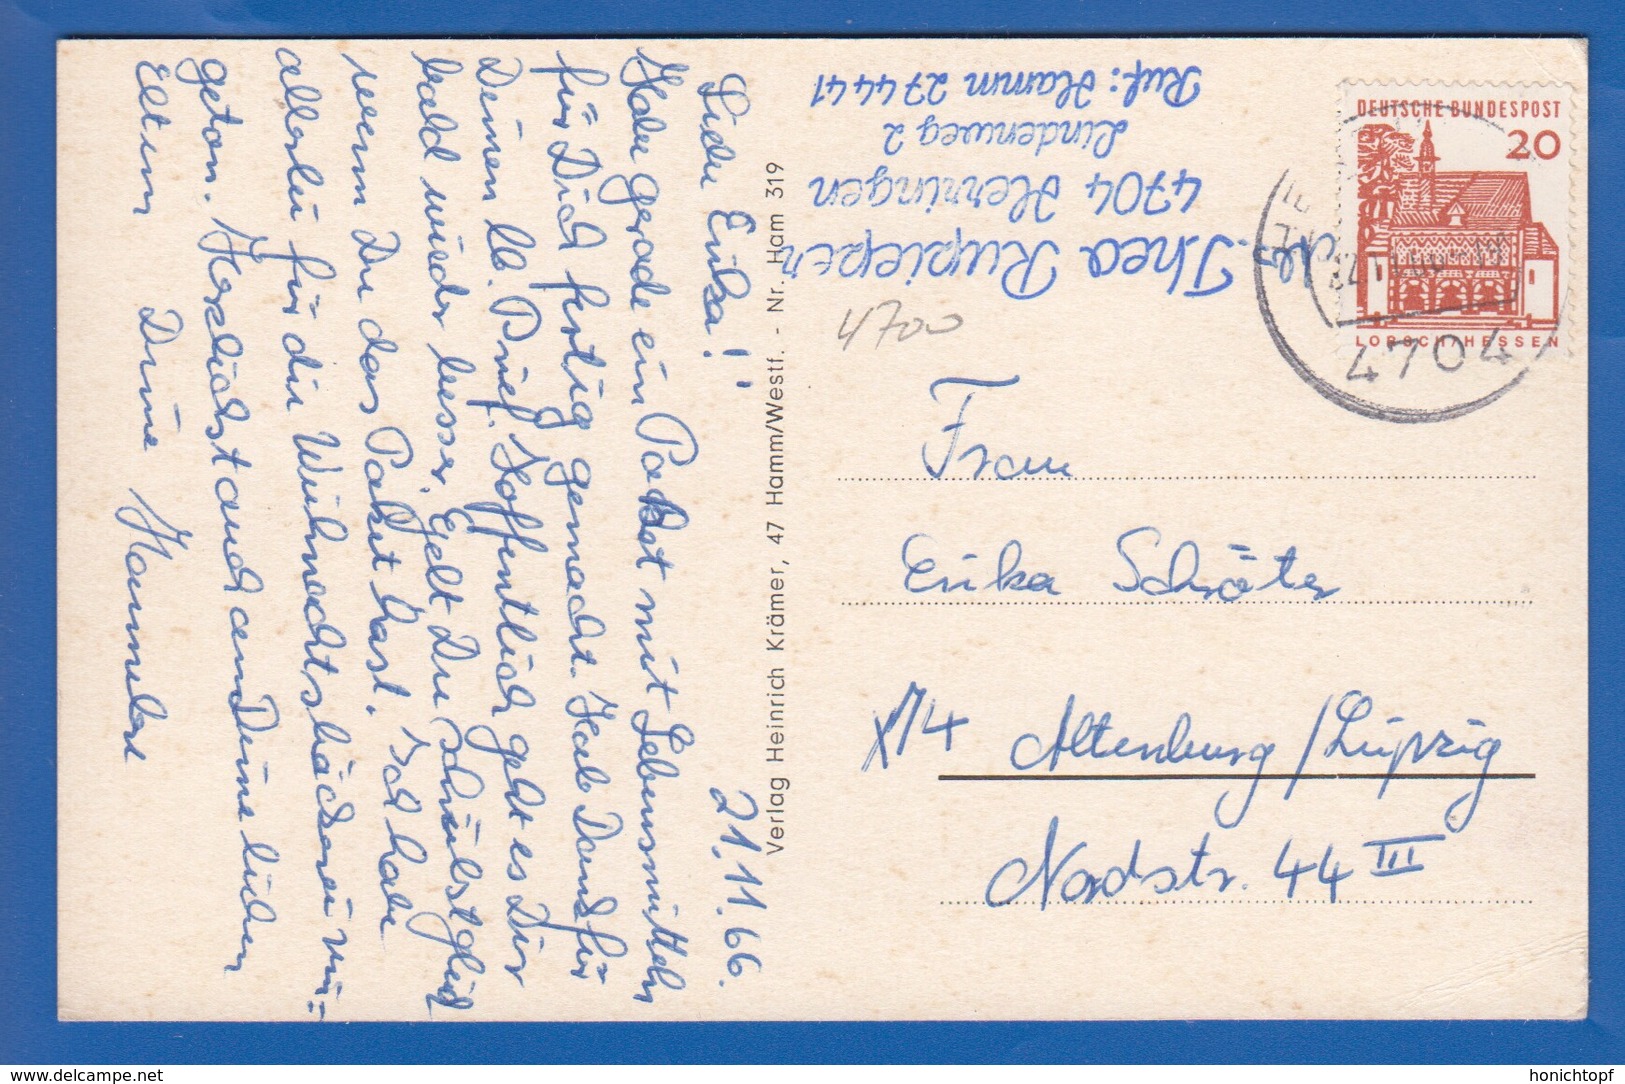 Liebe Erika! 21.11.66.
Habe gerade ein Paket mit Lebensmitteln
für Dich fertig gemacht. Hab Dank für
Deinen lb. Brief. Hoffentlich geht es Dir
bald wieder besser. Gelt Du schreibst gleich
wenn Du das Paket hast. Ich habe
allerlei für die Weihnachtsbäckerei rein=
getan. Herzlichst auch an Deine lieben
Eltern Deine Hannelore
Verlag Heinrich Krämer, 47 Hamm/Westf. - Nr. Ham 319
Abs. Thea Rupieper
4704 Herringen
Lindenweg 2
Ruf: Hamm 274441
4700
DEUTSCHE BUNDESPOST
20
LORSCH/HESSEN
4704
Frau
Erika Schröter
X/14 Altenburg/Leipzig
Nordstr. 44 III
www.delcampe.net
honichtopf